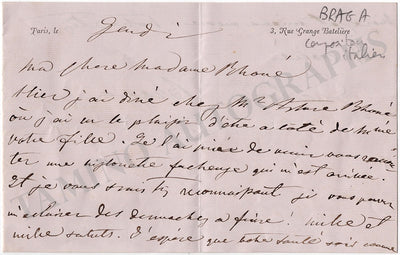 BRAGA
Compositeur
italien
Paris, le Jeudi
3, Rue Grange Batelière
Ma chere Madame Rhoné
Hier j'ai diné chez Mr Rhoné
où j'ai eu le plaisir d'être a coté de Mme
votre fille. Je l'ai de venir vous racon
ter une histouche facheuse qui m'est arrivée.
Et je vous serais reconnaissant si vous pouvez
m'eclairer des demarches a faire! mille et
mille saluts. J'espère que votre santé sois comme
TAMINO AUTOGRAPHS